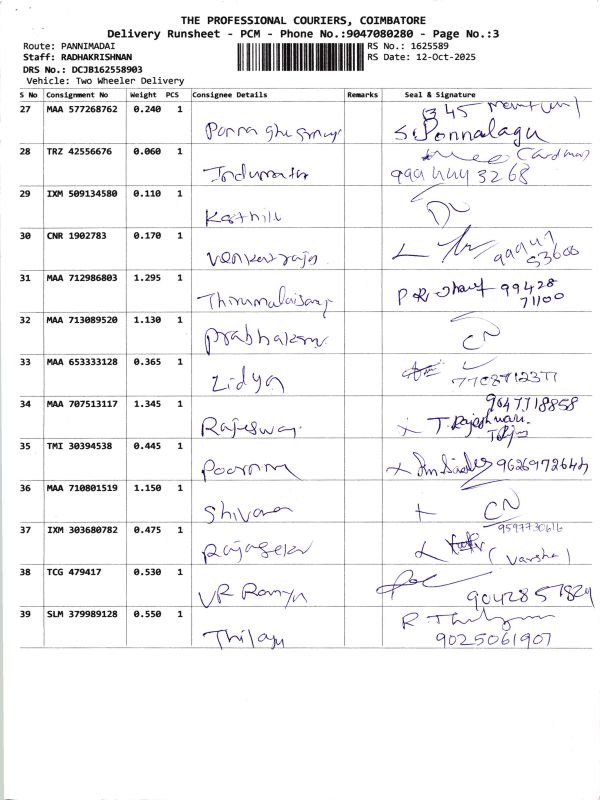 THE PROFESSIONAL COURIERS, COIMBATORE
Delivery Runsheet - PCM - Phone No.:9047080280 - Page No.:3
Route: PANNIMADAI
RS No.: 1625589
Staff: RADHAKRISHNAN
RS Date: 12-Oct-2025
DRS No.: DCJB162558903
Vehicle: Two Wheeler Delivery
S No Consignment No Weight PCS Consignee Details Remarks Seal & Signature
27 MAA 577268762 0.240 1 S. Ponnalagu
28 TRZ 42556676 0.060 1 Indumathi
29 IXM 509134580 0.110 1
30 CNR 1902783 0.170 1 Venkatraja
31 MAA 712986803 1.295 1 99428
71100
32 MAA 713089520 1.130 1 Prabhakaran CN
33 MAA 653333128 0.365 1 Zidya
34 MAA 707513117 1.345 1 Rajeswari 9047718858
T. Rajeshwari
35 TMI 30394538 0.445 1 Poornima
36 MAA 710801519 1.150 1 Shivana CN
9597730616
37 IXM 303680782 0.475 1 Rajasekar (Varsha)
38 TCG 479417 0.530 1 VR Ramya
39 SLM 379989128 0.550 1 Thilagu
9025061907